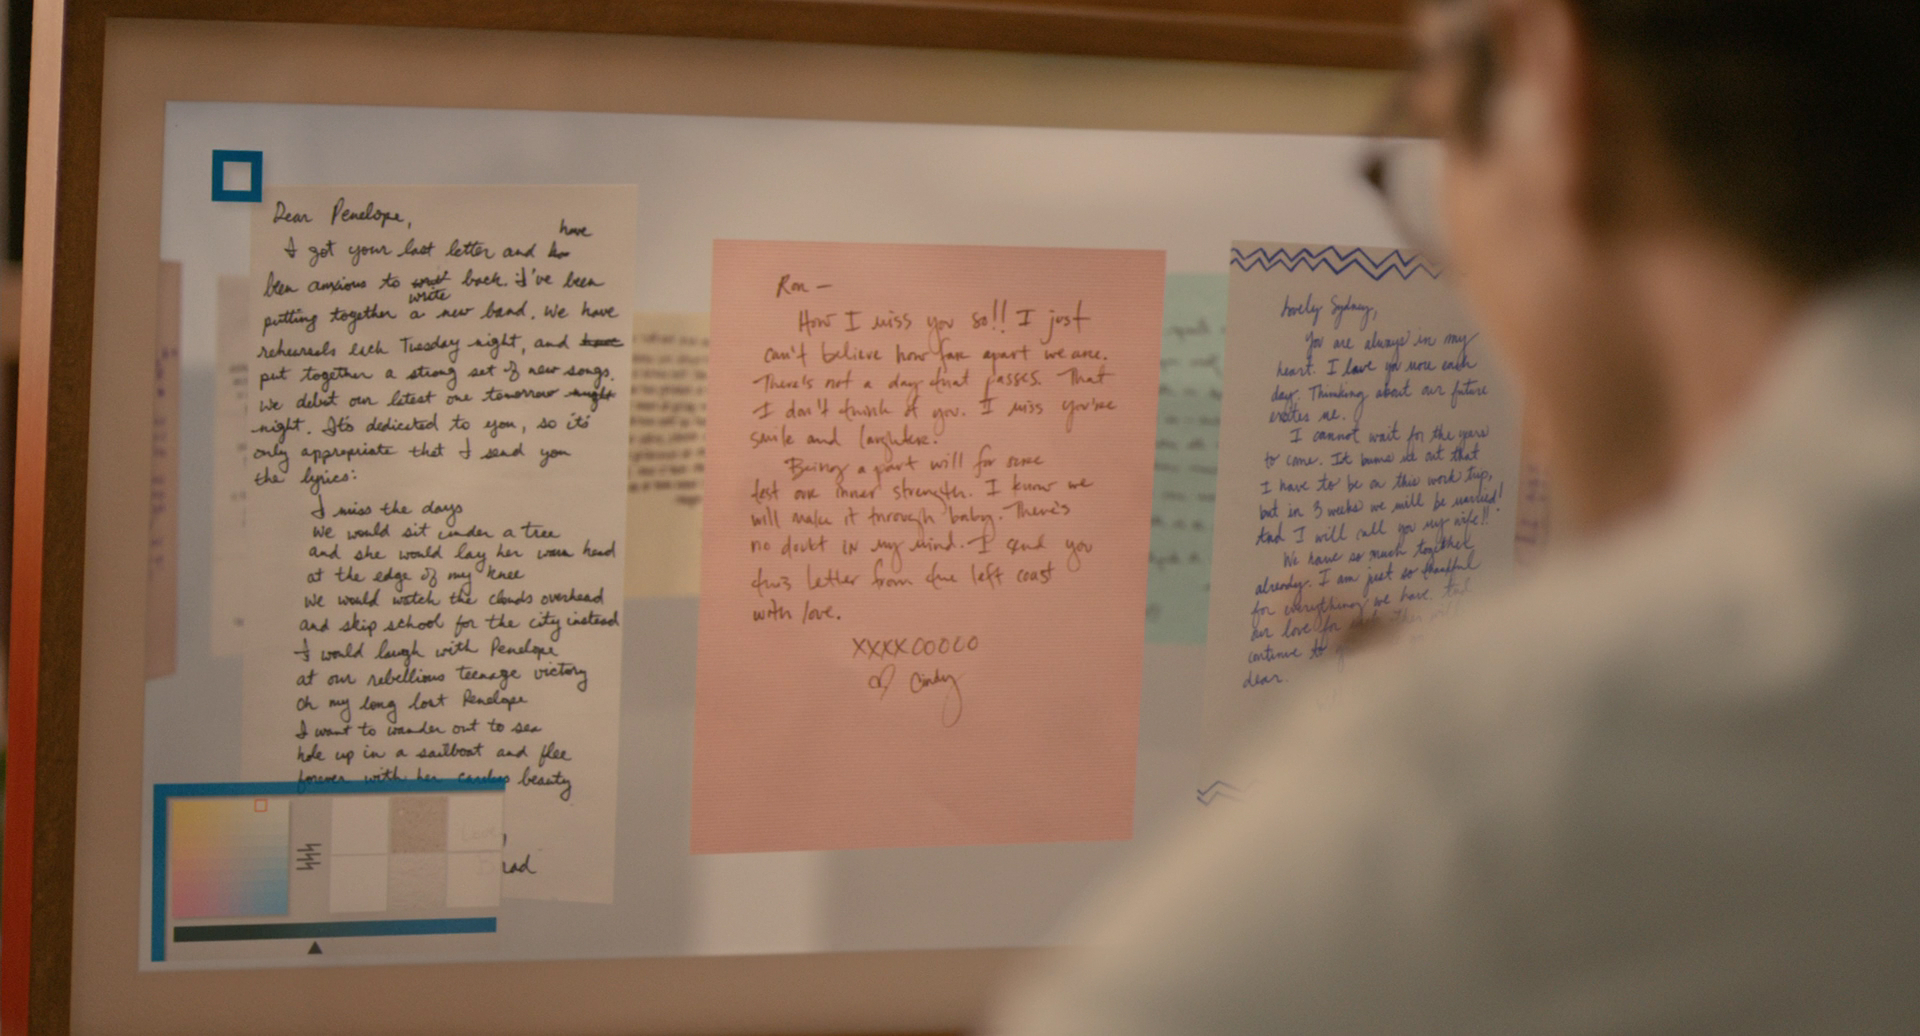 Dear Penelope,
have
I got your last letter and
been anxious to back. I've been
write
putting together a new band. We have
rehearsals each Tuesday night, and have
put together a strong set of new songs.
We debut our latest one tomorrow might
night. It's dedicated to you, so it's
only appropriate that I send you
the lyrics:
I miss the days
We would sit under a tree
and she would lay her worn head
at the edge of my knee
We would watch the clouds overhead
and skip school for the city instead
I would laugh with Penelope
at our rebellious teenage victory
Oh my long lost Penelope
I want to wander out to sea
hole up in a sailboat and flee
forever with her careless beauty
Ron —
How I miss you so!! I just
can't believe how far apart we are.
There's not a day that passes. That
I don't think of you. I miss you're
smile and laughter.
Being apart will for sure
test our inner strength. I know we
will make it through baby. There's
no doubt in my mind. I send you
this letter from the left coast
with love.
XXXXOOOOO
Cindy
Lovely Sydney,
You are always in my
heart. I love you more each
day. Thinking about our future
excites me.
I cannot wait for the years
to come. It bums me out that
I have to be on this work trip,
but in 3 weeks we will be married!
And I will call you my wife!!
We have so much together
already. I am just so thankful
for everything we have. And
our love for
continue to
dear.